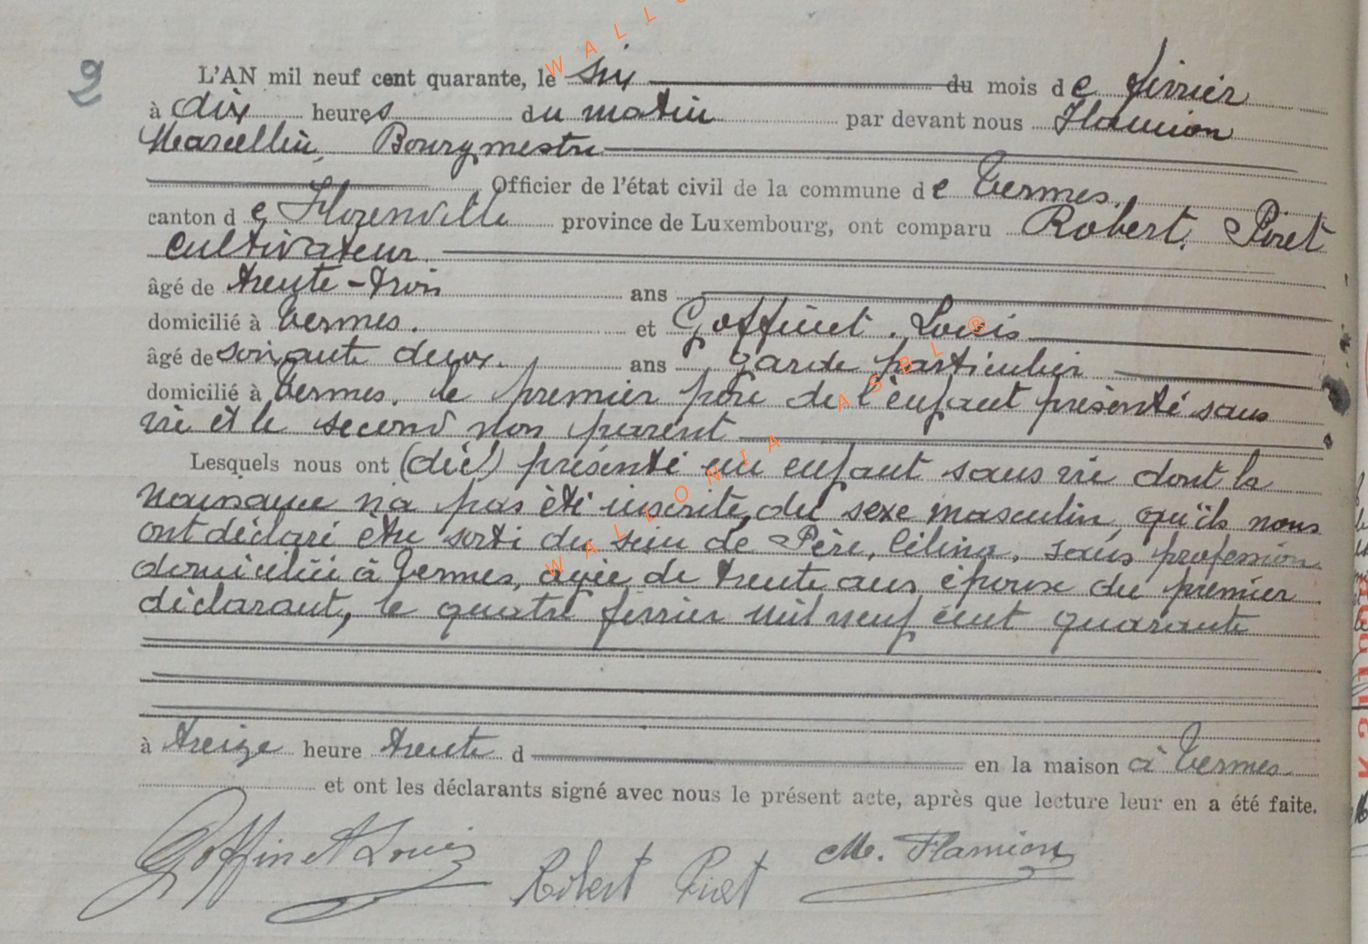 2
L'AN mil neuf cent quarante, le six du mois de février
à dix heures du matin par devant nous Flamion
Marcellin, Bourgmestre
Officier de l'état civil de la commune de Termes.
canton de Florenville province de Luxembourg, ont comparu Robert, Piret
cultivateur
âgé de trente-trois ans
domicilié à Termes. et Goffinet. Louis
âgé de soixante deux. ans garde particulier
domicilié à Termes. le premier père de l'enfant présenté sans
vie et le second non parent
Lesquels nous ont (dié) présenté un enfant sans vie dont la
naissance n'a pas été inscrite, du sexe masculin, qu'ils nous
ont déclaré être sorti du sein de Père, Célina, sans profession
domiciliée à Termes, agée de trente ans, épouse du premier
déclarant, le quatre février mil neuf cent quarante
à treize heure trente d en la maison à Termes
et ont les déclarants signé avec nous le présent acte, après que lecture leur en a été faite.
Goffinet Louis Robert Piret M. Flamion
WALLONIA ASBL ®
WALLO